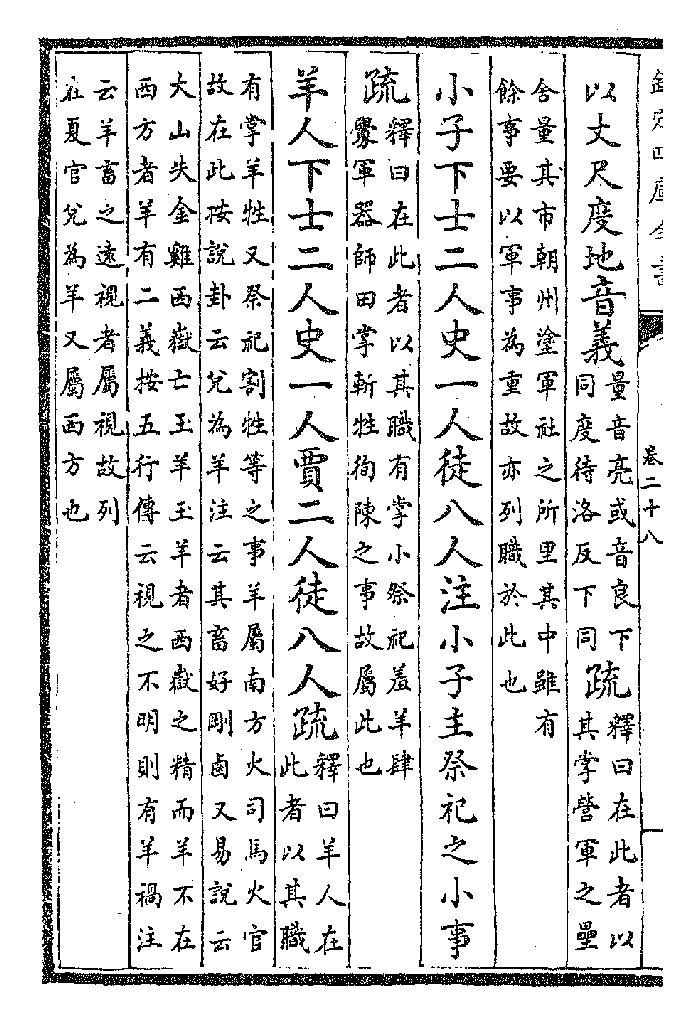 欽定四庫全書
卷二十八
一
以丈尺度地音義量音亮或音良下同度待洛反下同疏釋曰在此者以其掌營軍之壘
舍量其市朝州塗軍社之所里其中雖有餘事要以軍事為重故亦列職於此也
小子下士二人史一人徒八人注小子主祭祀之小事
疏釋曰在此者以其職有掌小祭祀羞羊肆釁軍器師田掌斬牲徇陳之事故屬此也
羊人下士二人史一人賈二人徒八人疏釋曰羊人在此者以其職
有掌羊牲又祭祀割牲等之事羊屬南方火司馬火官故在此按說卦云兌為羊注云其畜好剛鹵又易說云
大山失金雞西嶽亡玉羊玉羊者西嶽之精而羊不在西方者羊有二義按五行傳云視之不明則有羊禍注
云羊畜之遠視者屬視故列在夏官兌為羊又屬西方也